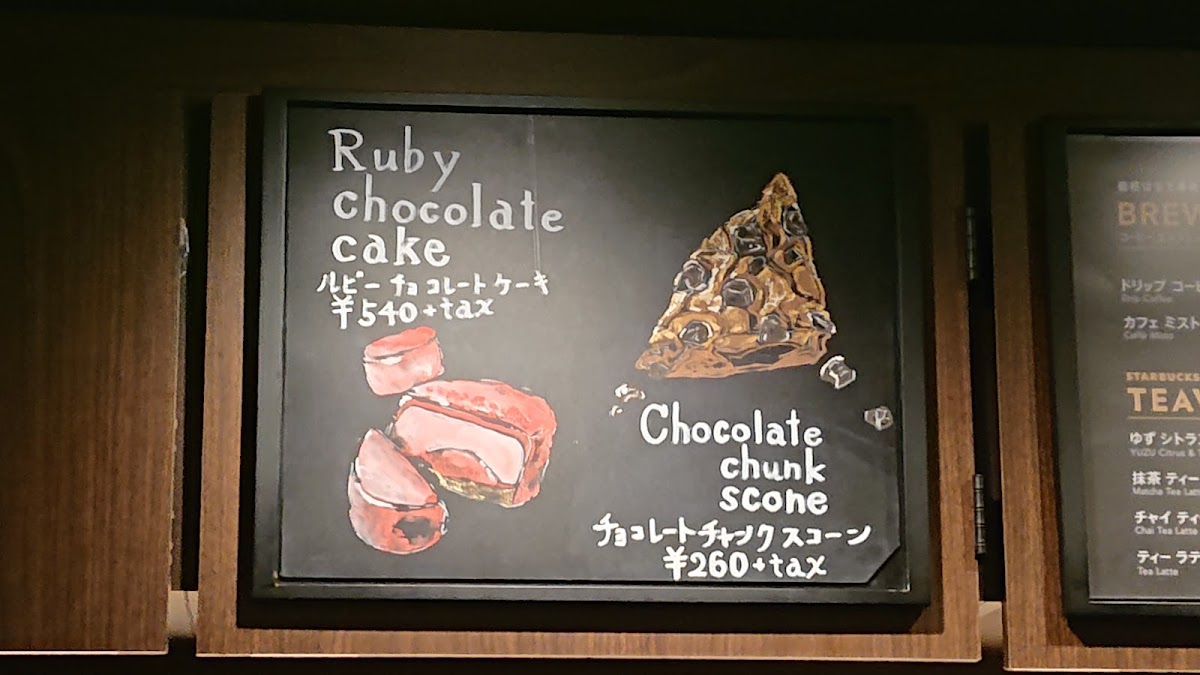 Ruby
chocolate
cake
ルビーチョコレートケーキ
¥540+tax
Chocolate
chunk
scone
チョコレートチャンクスコーン
¥260+tax
BREW
ドリップ コーヒ
Drip Coffee
カフェ ミスト
Caffe Misto
STARBUCKS
TEAV
ゆず シトラ
YUZU Citrus &
抹茶 ティー
Matcha Tea Latte
チャイ ティ
Chai Tea Latte
ティー ラテ
Tea Latte